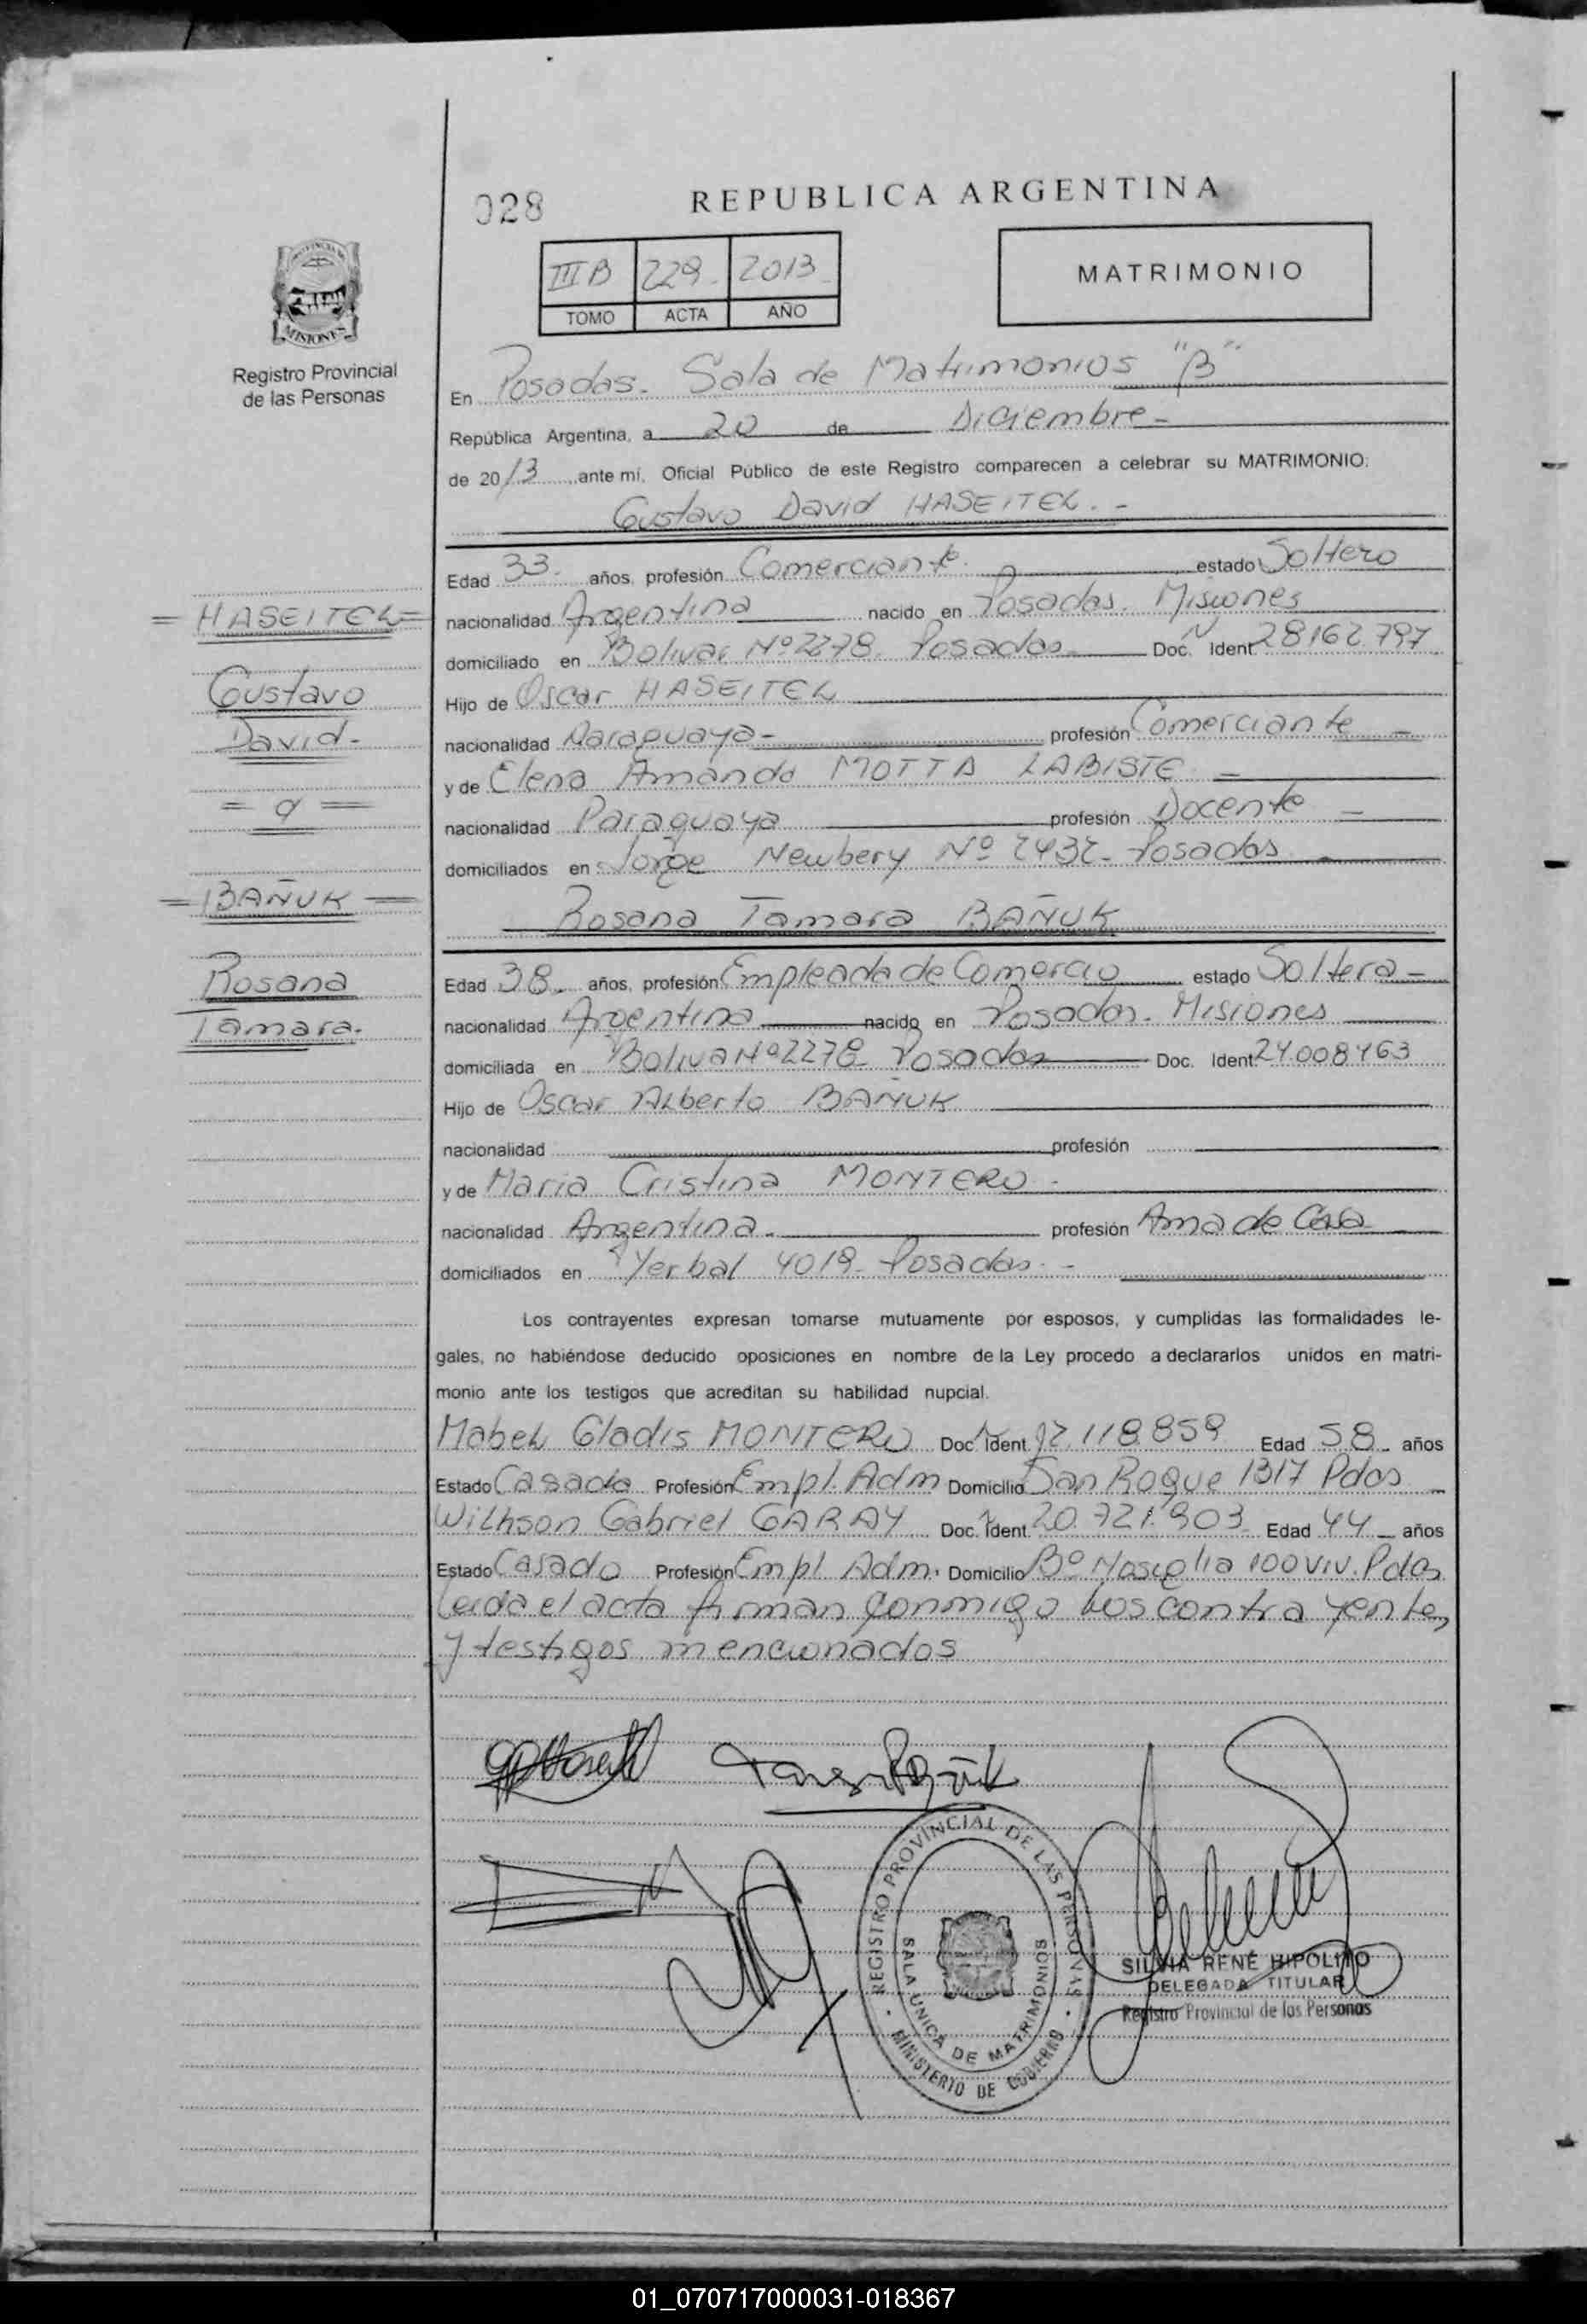 028
REPUBLICA ARGENTINA
III B 229 2013
TOMO ACTA AÑO
MATRIMONIO
PROVINCIA DE
MISIONES
Registro Provincial
de las Personas
En Posadas. Sala de Matrimonios "B"
República Argentina, a 20 de Diciembre
de 2013, ante mí, Oficial Público de este Registro comparecen a celebrar su MATRIMONIO:
Gustavo David HASEITEL.-
Edad 33 años, profesión Comerciante estado Soltero
nacionalidad Argentina nacido en Posadas. Misiones
domiciliado en Bolivar Nº 2278. Posadas Doc. N Ident 28162.797
Hijo de Oscar HASEITEL
nacionalidad Paraguaya- profesión Comerciante -
y de Elena Amanda MOTTA LABISTE -
nacionalidad Paraguaya profesión Docente -
domiciliados en Jorge Newbery Nº 2432- Posadas
Rosana Tamara BAÑUK
Edad 38 años, profesión Empleada de Comercio estado Soltera-
nacionalidad Argentina nacido en Posadas. Misiones
domiciliada en Boliva Nº 2278 Posadas Doc. Ident. 24.008463
Hijo de Oscar Alberto BAÑUK
nacionalidad profesión
y de Maria Cristina MONTERO -
nacionalidad Argentina. profesión Ama de Casa
domiciliados en Yerbal 4019- Posadas.-
Los contrayentes expresan tomarse mutuamente por esposos, y cumplidas las formalidades le-
gales, no habiéndose deducido oposiciones en nombre de la Ley procedo a declararlos unidos en matri-
monio ante los testigos que acreditan su habilidad nupcial.
Mabel Gladis MONTERO Doc. Ident. 12.118.859 Edad 58 años
Estado Casada Profesión Empl. Adm Domicilio San Roque 1317 Pdas
Wilhson Gabriel GARAY Doc. Ident. 20.721.903 Edad 44 años
Estado Casado Profesión Empl Adm. Domicilio Bº 100 VIV. Pdas
Leida el acta firman conmigo los contrayentes
y testigos mencionados
= HASEITEL =
Gustavo
David-
= q =
= BAÑUK =
Rosana
Tamara.
REGISTRO PROVINCIAL DE LAS PERSONAS
SALA UNICA DE MATRIMONIOS
MINISTERIO DE GOBIERNO
SILVIA RENÉ HIPOLITO
DELEGADA TITULAR
Registro Provincial de las Personas
01_070717000031-018367